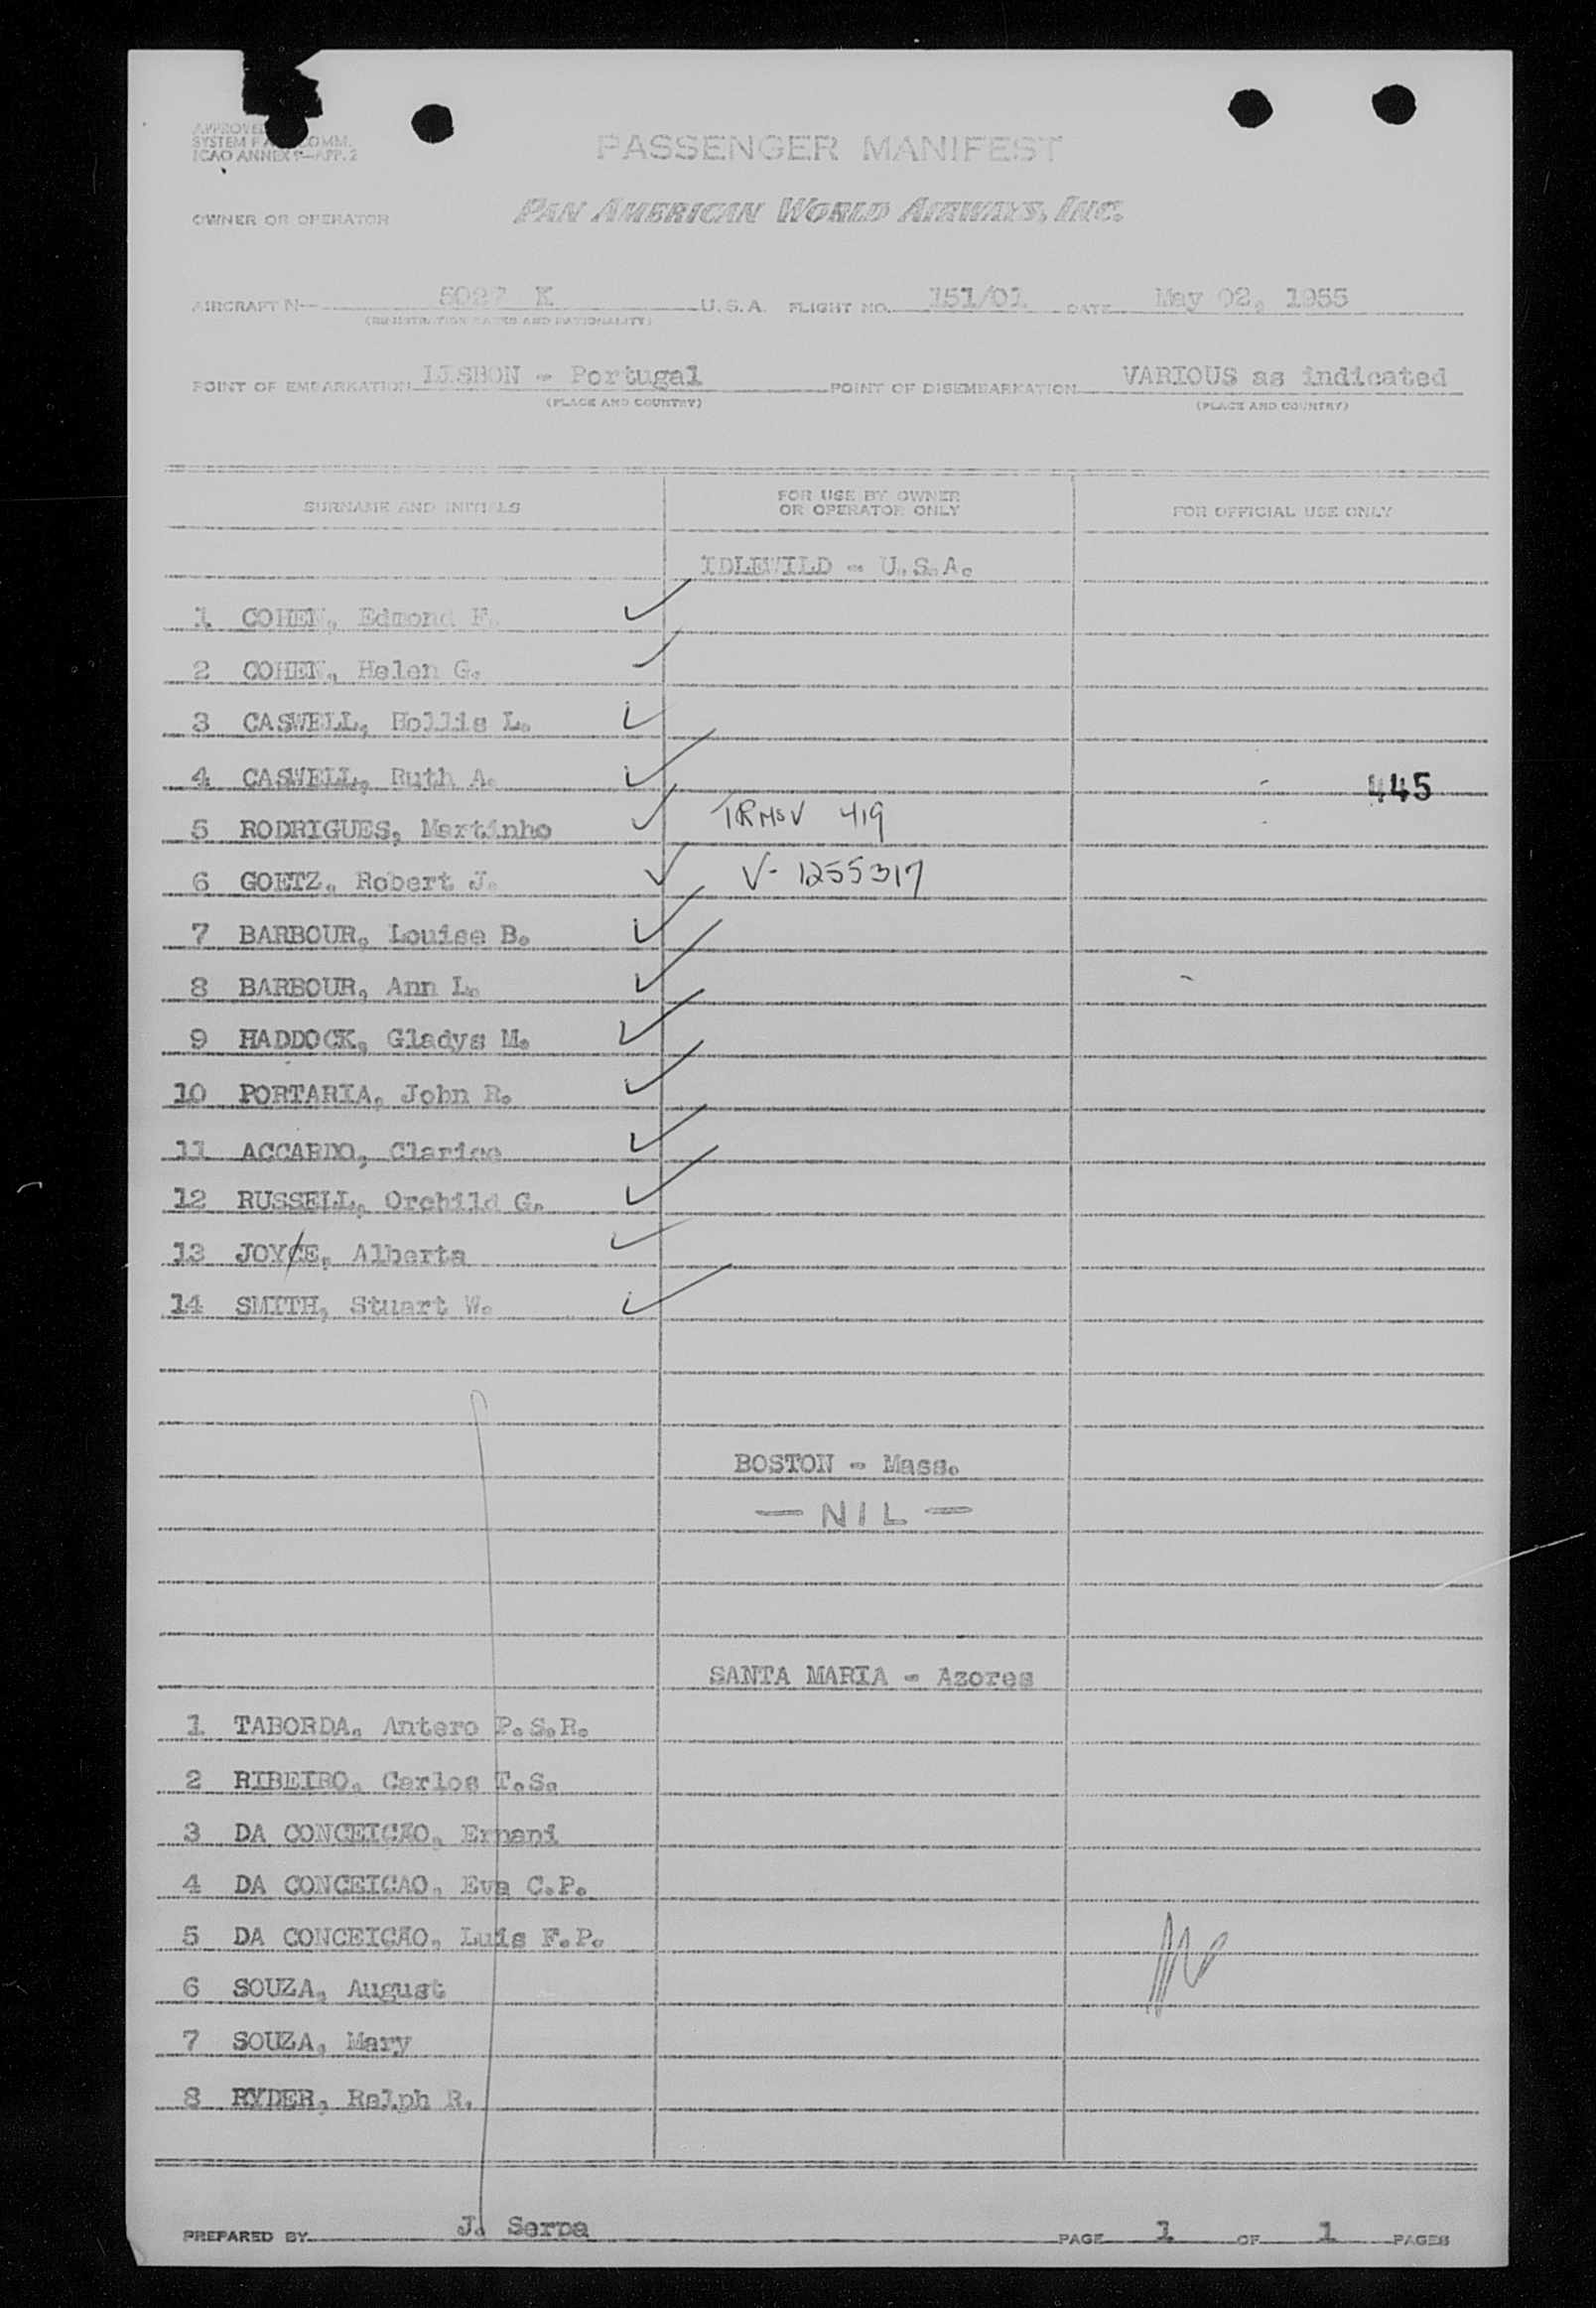 APPROVED
SYSTEM COMM.
ICAO ANNEX 9—APP. 2
PASSENGER MANIFEST
OWNER OR OPERATOR PAN AMERICAN WORLD AIRWAYS, INC.
AIRCRAFT N— 5027 K U.S.A. FLIGHT NO. 151/01 DATE May 02, 1955
(REGISTRATION MARKS AND NATIONALITY)
POINT OF EMBARKATION LISBON - Portugal POINT OF DISEMBARKATION VARIOUS as indicated
(PLACE AND COUNTRY) (PLACE AND COUNTRY)
SURNAME AND INITIALS FOR USE BY OWNER OR OPERATOR ONLY FOR OFFICIAL USE ONLY
IDLEWILD - U.S.A.
1 COHEN, Edmond F.
2 COHEN, Helen G.
3 CASWELL, Hollis L.
4 CASWELL, Ruth A. 445
5 RODRIGUES, Martinho 419
6 GOETZ, Robert J. V- 1255317
7 BARBOUR, Louise B.
8 BARBOUR, Ann L.
9 HADDOCK, Gladys M.
10 PORTARIA, John R.
11 ACCARDO, Clarice
12 RUSSELL, Orchild G.
13 JOYCE, Alberta
14 SMITH, Stuart W.
BOSTON - Mass.
— NIL —
SANTA MARIA - Azores
1 TABORDA, Antero P.S.R.
2 RIBEIRO, Carlos T.S.
3 DA CONCEIÇÃO, Ernani
4 DA CONCEICAO, Eva C.P.
5 DA CONCEIÇÃO, Luis F.P.
6 SOUZA, August
7 SOUZA, Mary
8 RYDER, Ralph R.
PREPARED BY J. Serpa PAGE 1 OF 1 PAGES